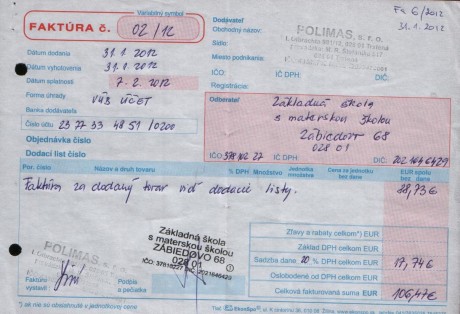 Variabilný symbol
FAKTÚRA č. 02/12
Fa 6/2012
31.1.2012
Dodávateľ
Obchodný názov:
POLIMAS, s. r. o.
Sídlo:
Miesto podnikania:
IČO:
IČ DPH:
DIČ:
Registrácia:
Dátum dodania 31.1.2012
Dátum vyhotovenia 31.1.2012
Dátum splatnosti 7-2.2012
Forma úhrady VÁŠ ÚČET
Banka dodávateľa
Číslo účtu 23 77 33 48 51 /0200
Objednávka číslo
Dodací list číslo
Odberateľ
Základná škola
s materskou školou
Zábiedovo 68
028 01
IČO:
IČ DPH
DIČ: 2021646429
Por. číslo Názov a druh tovaru Množstvo Jednotka množstva Cena za jednotku bez dane EUR spolu bez dane
Faktúra za dodaný tovar viď dodacie listy. 88,73€
Základná škola
s materskou školou
ZÁBIEDOVO 68
028 01
POLIMAS, s. r. o.
Zľavy a rabaty celkom*) EUR
Základ DPH celkom EUR
Sadzba dane 20 % DPH celkom EUR 17,74€
Oslobodené od DPH celkom EUR
Celková fakturovaná suma EUR 106,47€
Faktúru vystavil:
Podpis a pečiatka
*) ak nie sú obsiahnuté v jednotkovej cene